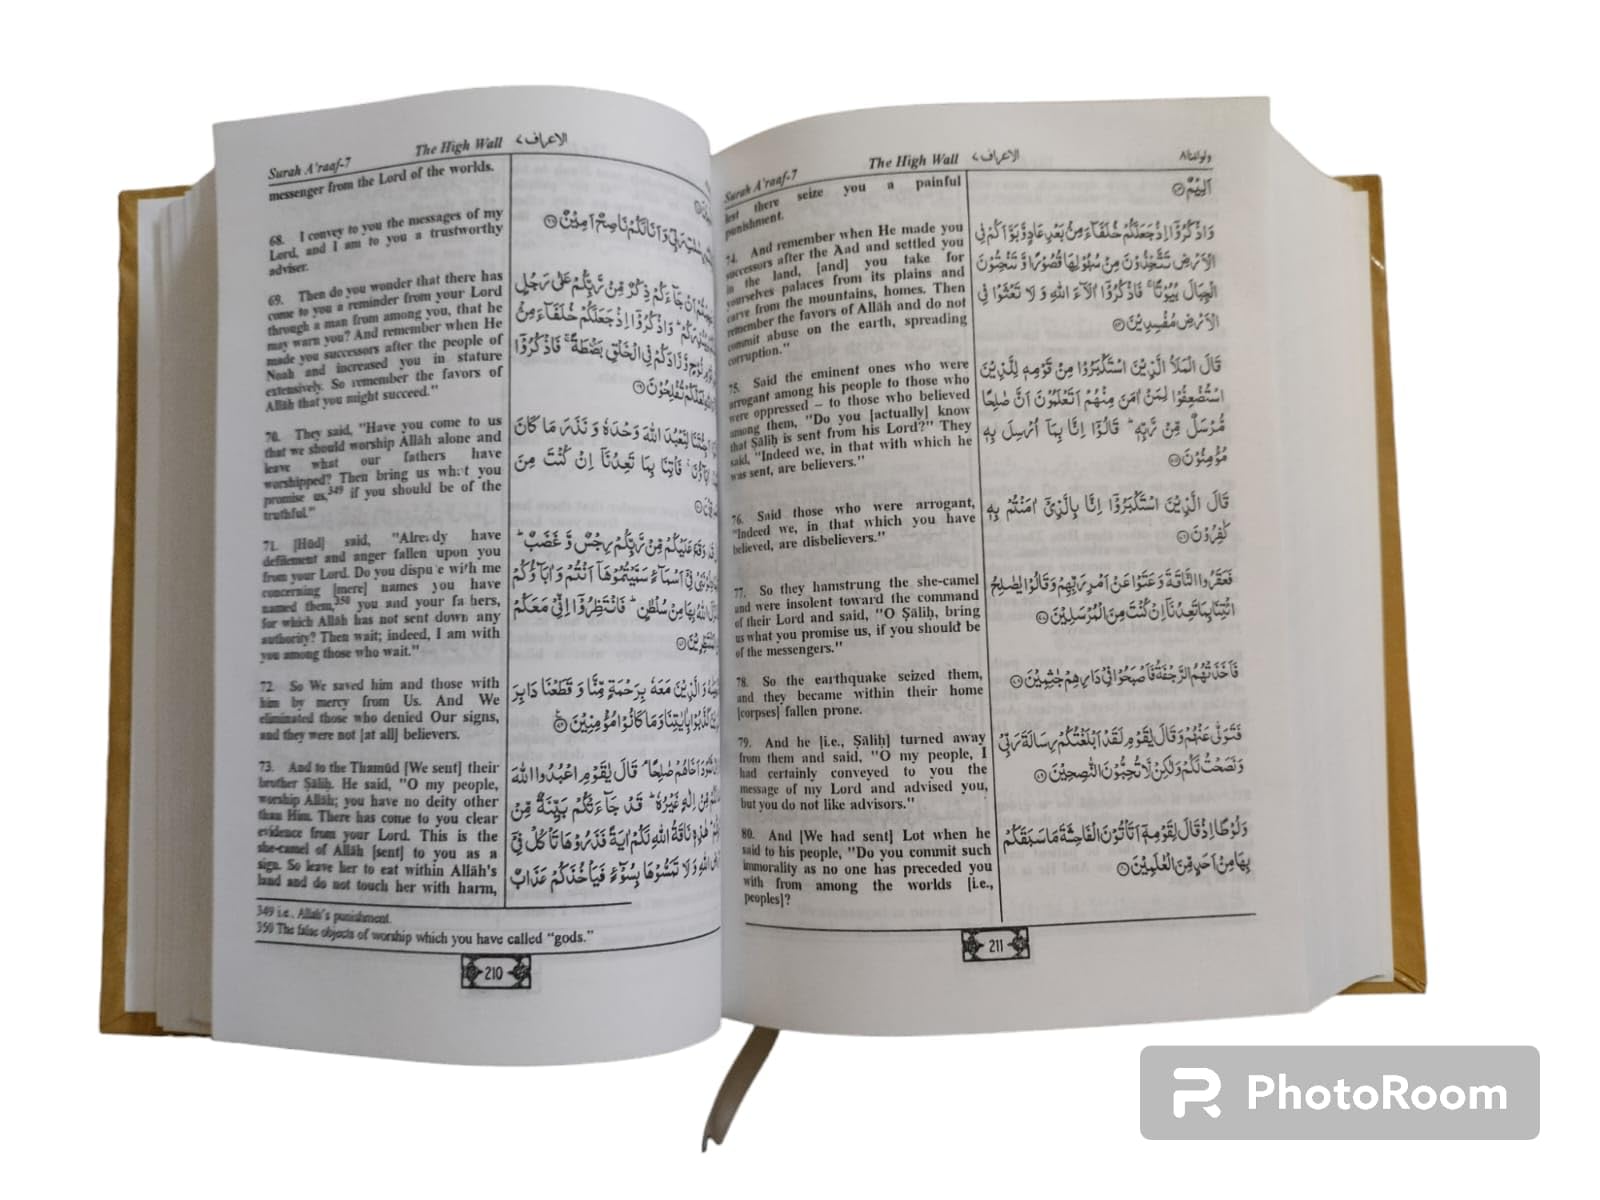 Surah A'raaf-7 The High Wall الاعراف ٧
messenger from the Lord of the worlds.
68. I convey to you the messages of my
Lord, and I am to you a trustworthy
adviser.
69. Then do you wonder that there has
come to you a reminder from your Lord
through a man from among you, that he
may warn you? And remember when He
made you successors after the people of
Noah and increased you in stature
extensively. So remember the favors of
Allāh that you might succeed."
70. They said, "Have you come to us
that we should worship Allāh alone and
leave what our fathers have
worshipped? Then bring us what you
promise us,349 if you should be of the
truthful."
71. [Hūd] said, "Already have
defilement and anger fallen upon you
from your Lord. Do you dispute with me
concerning [mere] names you have
named them,350 you and your fathers,
for which Allāh has not sent down any
authority? Then wait; indeed, I am with
you among those who wait."
72. So We saved him and those with
him by mercy from Us. And We
eliminated those who denied Our signs,
and they were not [at all] believers.
73. And to the Thamūd [We sent] their
brother Ṣāliḥ. He said, "O my people,
worship Allāh; you have no deity other
than Him. There has come to you clear
evidence from your Lord. This is the
she-camel of Allāh [sent] to you as a
sign. So leave her to eat within Allāh's
land and do not touch her with harm,
وَاَنَا لَكُمْ نَاصِحٌ اَمِيْنٌ
اَنْ جَآءَكُمْ ذِكْرٌ مِّنْ رَّبِّكُمْ عَلٰى رَجُلٍ
وَاذْكُرُوْٓا اِذْ جَعَلَكُمْ خُلَفَآءَ مِنْۢ
وَّزَادَكُمْ فِى الْخَلْقِ بَصْۜطَةً ۚ فَاذْكُرُوْٓا
لَعَلَّكُمْ تُفْلِحُوْنَ
لِنَعْبُدَ اللّٰهَ وَحْدَهٗ وَنَذَرَ مَا كَانَ
فَاْتِنَا بِمَا تَعِدُنَآ اِنْ كُنْتَ مِنَ
وَقَعَ عَلَيْكُمْ مِّنْ رَّبِّكُمْ رِجْسٌ وَّ غَضَبٌ ؕ
فِيْٓ اَسْمَآءٍ سَمَّيْتُمُوْهَآ اَنْتُمْ وَاٰبَآؤُكُمْ
اللّٰهُ بِهَا مِنْ سُلْطٰنٍ ؕ فَانْتَظِرُوْٓا اِنِّيْ مَعَكُمْ
وَالَّذِيْنَ مَعَهٗ بِرَحْمَةٍ مِّنَّا وَ قَطَعْنَا دَابِرَ
كَذَّبُوْا بِاٰيٰتِنَا وَمَا كَانُوْا مُؤْمِنِيْنَ
اَخَاهُمْ صٰلِحًا ۘ قَالَ يٰقَوْمِ اعْبُدُوا اللّٰهَ
مِّنْ اِلٰهٍ غَيْرُهٗ ؕ قَدْ جَآءَتْكُمْ بَيِّنَةٌ مِّنْ
هٰذِهٖ نَاقَةُ اللّٰهِ لَكُمْ اٰيَةً فَذَرُوْهَا تَاْكُلْ فِيْٓ
اللّٰهِ وَلَا تَمَسُّوْهَا بِسُوْٓءٍ فَيَاْخُذَكُمْ عَذَابٌ
349 i.e., Allāh's punishment.
350 The false objects of worship which you have called "gods."
210
Surah A'raaf-7 The High Wall الاعراف ٧ ولواننا ٨
lest there seize you a painful
punishment.
74. And remember when He made you
successors after the Aad and settled you
in the land, [and] you take for
yourselves palaces from its plains and
carve from the mountains, homes. Then
remember the favors of Allāh and do not
commit abuse on the earth, spreading
corruption."
75. Said the eminent ones who were
arrogant among his people to those who
were oppressed – to those who believed
among them, "Do you [actually] know
that Ṣāliḥ is sent from his Lord?" They
said, "Indeed we, in that with which he
was sent, are believers."
76. Said those who were arrogant,
"Indeed we, in that which you have
believed, are disbelievers."
77. So they hamstrung the she-camel
and were insolent toward the command
of their Lord and said, "O Ṣāliḥ, bring
us what you promise us, if you should be
of the messengers."
78. So the earthquake seized them,
and they became within their home
[corpses] fallen prone.
79. And he [i.e., Ṣāliḥ] turned away
from them and said, "O my people, I
had certainly conveyed to you the
message of my Lord and advised you,
but you do not like advisors."
80. And [We had sent] Lot when he
said to his people, "Do you commit such
immorality as no one has preceded you
with from among the worlds [i.e.,
peoples]?
اَلِيْمٌ ٧٣
وَاذْكُرُوْٓا اِذْ جَعَلَكُمْ خُلَفَآءَ مِنْۢ بَعْدِ عَادٍ وَّبَوَّاَكُمْ فِى
الْاَرْضِ تَتَّخِذُوْنَ مِنْ سُهُوْلِهَا قُصُوْرًا وَّ تَنْحِتُوْنَ
الْجِبَالَ بُيُوْتًا ۚ فَاذْكُرُوْٓا اٰلَآءَ اللّٰهِ وَ لَا تَعْثَوْا فِى
الْاَرْضِ مُفْسِدِيْنَ ٧٤
قَالَ الْمَلَاُ الَّذِيْنَ اسْتَكْبَرُوْا مِنْ قَوْمِهٖ لِلَّذِيْنَ
اسْتُضْعِفُوْا لِمَنْ اٰمَنَ مِنْهُمْ اَتَعْلَمُوْنَ اَنَّ صٰلِحًا
مُّرْسَلٌ مِّنْ رَّبِّهٖ ؕ قَالُوْٓا اِنَّا بِمَآ اُرْسِلَ بِهٖ
مُؤْمِنُوْنَ ٧٥
قَالَ الَّذِيْنَ اسْتَكْبَرُوْٓا اِنَّا بِالَّذِيْٓ اٰمَنْتُمْ بِهٖ
كٰفِرُوْنَ ٧٦
فَعَقَرُوا النَّاقَةَ وَعَتَوْا عَنْ اَمْرِ رَبِّهِمْ وَقَالُوْا يٰصٰلِحُ
ائْتِنَا بِمَا تَعِدُنَآ اِنْ كُنْتَ مِنَ الْمُرْسَلِيْنَ ٧٧
فَاَخَذَتْهُمُ الرَّجْفَةُ فَاَصْبَحُوْا فِيْ دَارِهِمْ جٰثِمِيْنَ ٧٨
فَتَوَلّٰى عَنْهُمْ وَقَالَ يٰقَوْمِ لَقَدْ اَبْلَغْتُكُمْ رِسَالَةَ رَبِّيْ
وَنَصَحْتُ لَكُمْ وَلٰكِنْ لَّا تُحِبُّوْنَ النّٰصِحِيْنَ ٧٩
وَلُوْطًا اِذْ قَالَ لِقَوْمِهٖٓ اَتَاْتُوْنَ الْفَاحِشَةَ مَا سَبَقَكُمْ
بِهَا مِنْ اَحَدٍ مِّنَ الْعٰلَمِيْنَ ٨٠
211
PhotoRoom